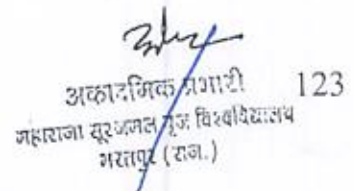 अकादमिक प्रभारी 123
महाराजा सूरजमल बृज विश्वविद्यालय
भरतपुर (राज.)